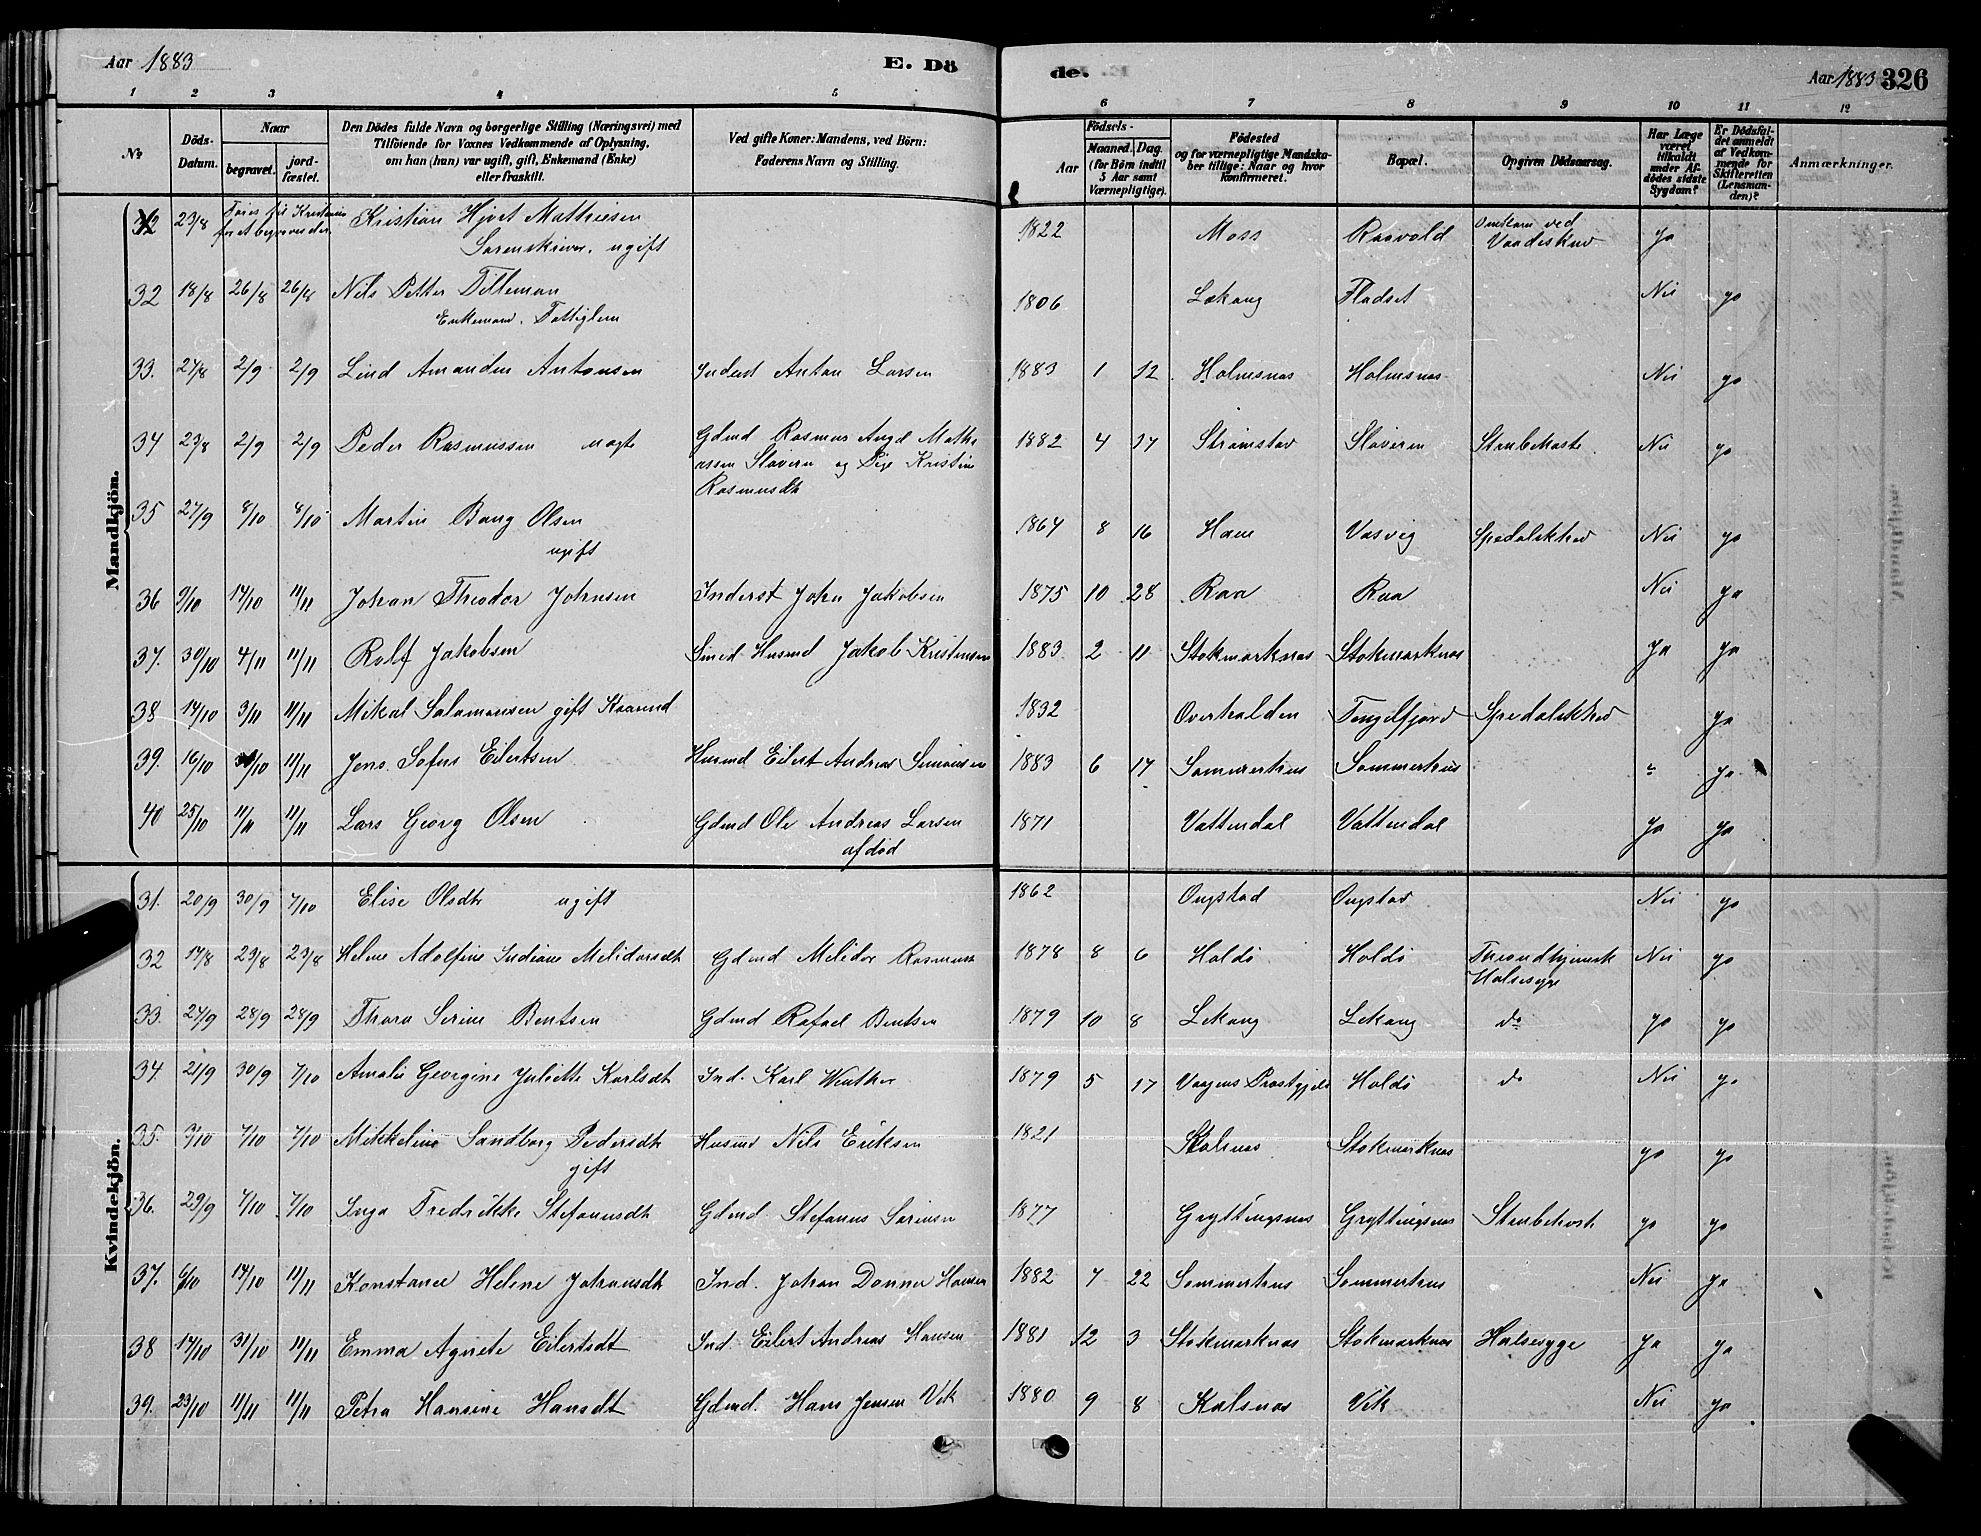 Aar 1883 E. Dö de. Aar 1883 326
1 2 3 4 5 6 7 8 9 10 11 12
No Döds-Datum. Naar begravet. jordfæstet. Den Dödes fulde Navn og borgerlige Stilling (Næringsvei) med Tilföiende for Voxnes Vedkommende af Oplysning, om han (hun) var ugift, gift, Enkemand (Enke) eller fraskilt. Ved gifte Koner: Mandens, ved Börn: Faderens Navn og Stilling. Födsels- Aar Maaned. Dag. (for Börn indtil 5 Aar samt Værnepligtige). Födested og for værnepligtige Mandskaber tillige: Naar og hvor konfirmeret. Bopæl. Opgiven Dödsaarsag. Har Læge været tilkaldt under Afdödes sidste Sygdom? Er Dödsfaldet anmeldt af Vedkommende for Skifteretten (Lensmanden)? Anmærkninger.
Mandkjön.
23/8 Föres til Kristiania Kristian Hjort Mathiesen 1822 Moss Raavold Omkom ved Ja
for at begraves der. Sorenskriver, ugift Vaadeskud
32 18/8 26/8 26/8 Nils Petter Tilleman 1806 Lekang Fladset Nei ja
Enkemand, Fattiglem
33. 27/8 2/9 2/9 Lind Amandin Antonsen Inderst Anton Larsen 1883 1 12 Holmsnes Holmsnes Nei ja
34 23/8 2/9 2/9 Peder Rasmussen uægte Gdmd Rasmus Angel Mathi 1882 4 27 Strømstav Slaveren Strubehoste Nei ja
assen Slaveren og Pige Kristine
Rasmusdt
35 27/9 8/10 8/10 Martin Bang Olsen 1864 8 16 Ham Vasvig Spedalskhed Nei ja
ugift
36 9/10 14/10 11/11 Johan Theodor Johnsen Inderst John Jakobsen 1875 10 28 Raa Raa Nei ja
37. 30/10 4/11 11/11 Rolf Jakobsen Smed Husmd Jakob Kristensen 1883 2 11 Stokmarknæs Stokmarknæs Ja ja
38 14/10 3/11 11/11 Mikal Salamonsen gift Kaarmd 1832 Overhalden Tengelfjord Spedalskhed ja
39. 16/10 /10 11/11 Jens Sofus Eilertsen Husmd Eilert Andreas Simonsen 1883 6 17 Sommerhus Sommerhus ja
40 25/10 11/11 11/11 Lars Georg Olsen Gdmd Ole Andreas Larsen 1871 Vattendal Vattendal Ja ja
afdød
Kvindekjön.
31. 20/9 30/9 7/10 Elise Olsdtr ugift 1862 Ongstad Ongstad Nei ja
32 17/8 23/8 23/8 Helene Adolfine Indiane Melidorsdt Gdmd Melidor Rasmussen 1878 8 6 Holdø Holdø Throndhjemsk Nei ja
Halsesyge
33. 24/9 28/9 28/9 Thora Serine Bentsen Gdmd Rafael Bentsen 1879 10 8 Lekang Lekang do ja ja
34. 21/9 30/9 7/10 Amalie Georgine Juliette Karlsdt Ind. Karl Winther 1879 5 17 Vaagens Prestgjeld Holdø do Nei ja
35. 3/10 7/10 7/10 Mikkeline Sandborg Pedersdt Husmd Nils Eriksen 1821 Skalnæs Stokmarknæs ja ja
gift
36. 29/9 7/10 7/10 Inga Fredrikke Stefanusdt Gdmd. Stefanus Sørensen 1877 Gryttingsnes Gryttingsnes Strubehoste ja ja
37. 6/10 14/10 11/11 Konstance Helene Johansdt Ind. Johan Donner Hansen 1882 7 22 Sommerhus Sommerhus Nei ja
38 17/10 31/10 11/11 Emma Agnete Eilertsdt Ind. Eilert Andreas Hansen 1881 12 3 Stokmarknæs Stokmarknæs Halsesyge Ja ja
39. 23/10 11/11 11/11 Petra Hansine Hansdt Gdmd. Hans Jensen Vik 1880 9 8 Kalsnæs Vik Nei ja